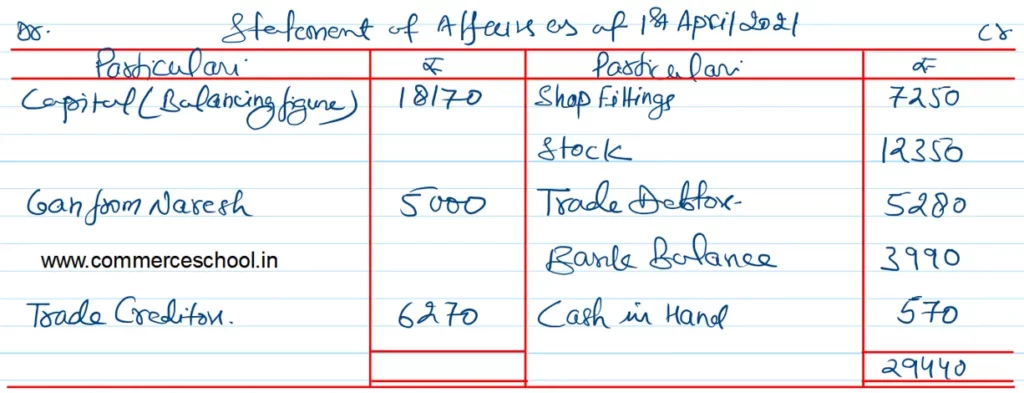 Dr. Statement of Affairs as of 1st April 2021 Cr
Particulars ₹ Particulars ₹
Capital (Balancing figure) 18170 Shop Fittings 7250
Stock 12350
Loan from Naresh 5000 Trade Debtors 5280
www.commerceschool.in Bank Balance 3990
Trade Creditors. 6270 Cash in Hand 570
29440